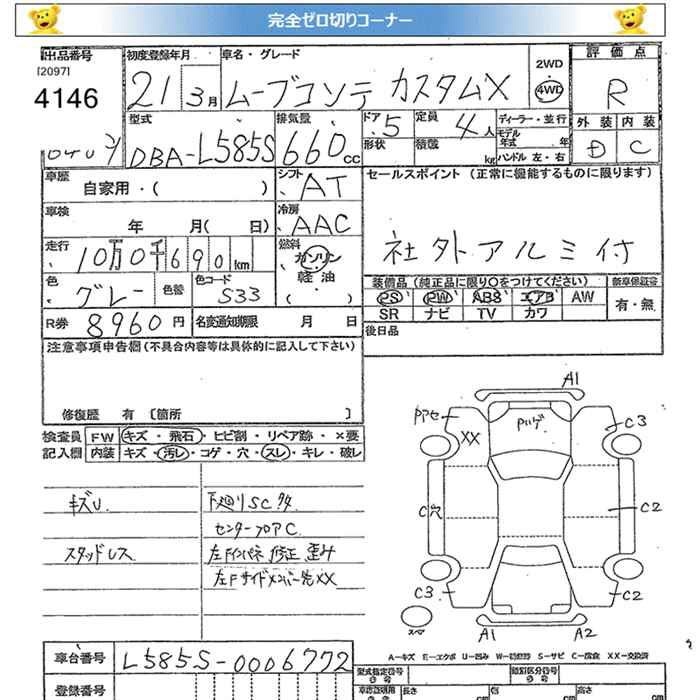 完全ゼロ切りコーナー
出品番号 初度登録年月 車名・グレード 2WD 評価点
[2097]
4146 21 3月 ムーブコンテ カスタムX 4WD R
型式 排気量 ドア 定員 ディーラー・並行 外装 内装
DBA-L585S 660cc 5 4人 モデル年式 年 D C
形状 積載 kg ハンドル 左・右
車歴 シフト セールスポイント(正常に機能するものに限ります)
自家用・( ) AT
車検 冷房
年 月( 日) AAC 社外アルミ付
走行 燃料
10万0千690km ガソリン
軽油
( )
色 色替 色コード 装備品(純正品に限り○をつけてください) 新車保証書
グレー S33 PS PW ABS エアB AW 有・無
SR ナビ TV カワ
R券 8960円 名変通知期限 月 日 後日品
注意事項申告欄(不具合内容等は具体的に記入して下さい)
修復歴 有 [箇所 ]
検査員 FW キズ・飛石・ヒビ割・リペア跡・×要
記入欄 内装 キズ・汚レ・コゲ・穴・スレ・キレ・破レ
キズU 下廻りSC
センターフロアC
スタッドレス 左Fインパネ 修正 歪み
左Fサイドメンバー先XX
A1
Pアセ Pハゲ C3
XX
C穴 C2
C3 C2
スペア A1 A2
A-キズ E-エクボ U-凹み W-補修跡 S-サビ C-腐食 XX-交換済
車台番号 L585S-0006772
型式指定番号 類別区分番号
登録番号 長さ cm 幅 cm 高さ cm